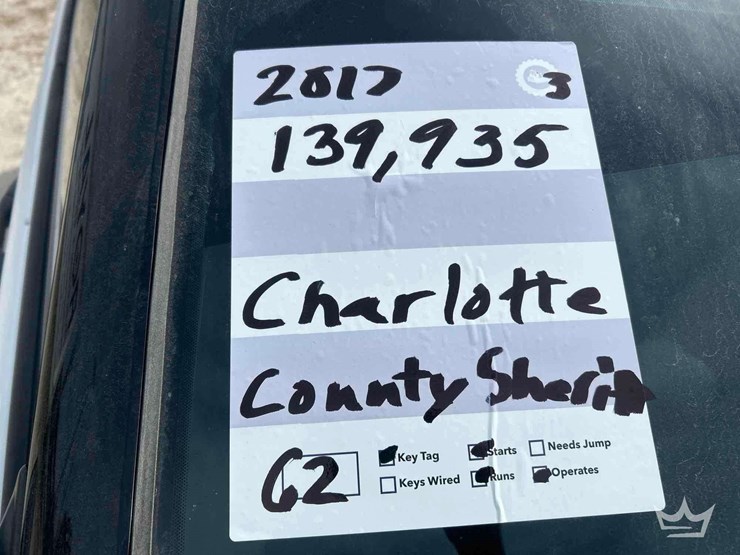 2017 3
139,935
Charlotte
County Sheriff
62 Key Tag Starts Needs Jump
Keys Wired Runs Operates